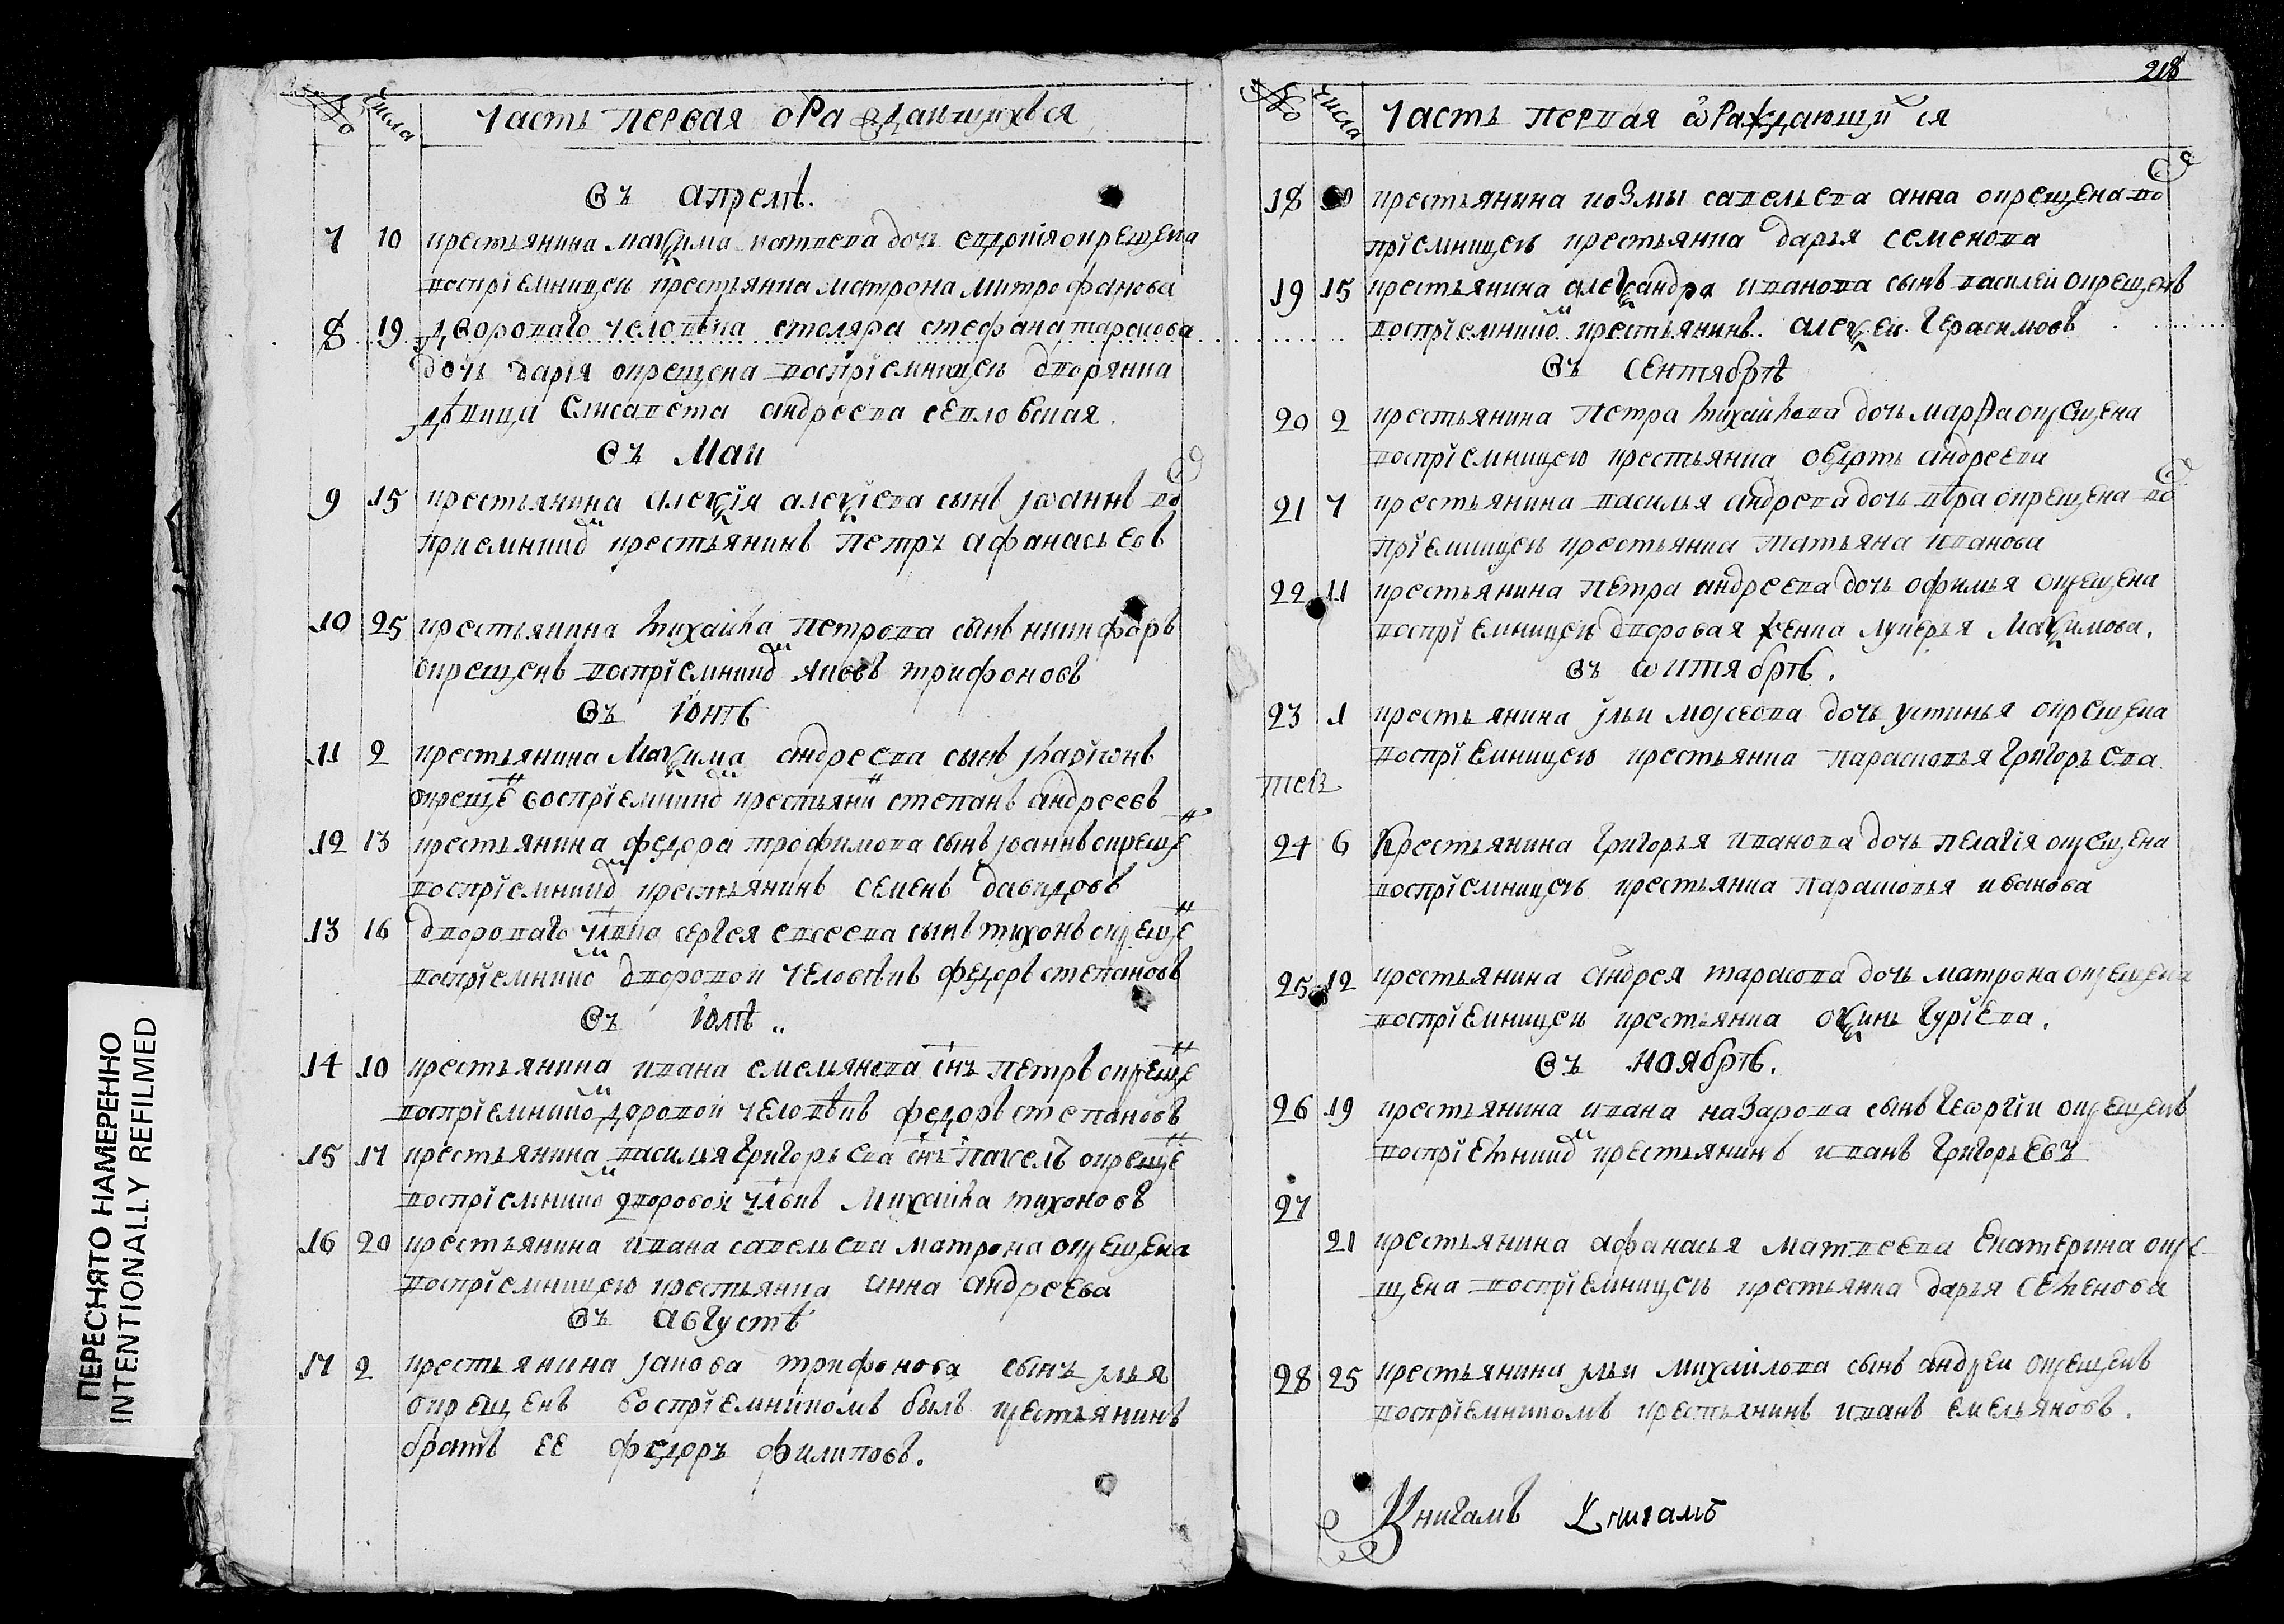 № числа Часть первая о Раждаищихъся
Въ апрелѣ.
7 10 крестьянина маѯима матвева дочь евдокия окрещена
воспрiемницеи крестьянка матрона митрофанова
8 19 Двороваго человѣка столяра стефана тарасова
дочь дарiя окрещена воспрiемницеи дворянка
дѣвица Елисавета андреева
Въ Маи
9 15 крестьянина алеѯiя алеѯiева сынъ Iѡаннъ во
приемникомъ крестьянинъ Петръ афанасьевъ
10 25 крестьянина михаила петрова сынъ никифоръ
окрещенъ воспрiемникомъ яковъ трифоновъ
Въ Iюнѣ
11 2 крестьянина Маѯима андреева сынъ Iларiѡнъ
окрещенъ воспрiемникомъ крестьянинъ степанъ андреевъ
12 13 крестьянина федора трофимова сынъ Iоаннъ окрещенъ
воспрiемникомъ крестьянинъ семенъ давыдовъ
13 16 двороваго члвка сергея евсеева сынъ тихонъ окрещенъ
воспрiемникомъ дворовои человѣкъ федоръ степановъ
Въ Iюлѣ
14 10 крестьянина ивана емемянова снъ петръ окрещенъ
воспрiемникомъ дворовои человѣкъ федоръ степановъ
15 17 крестьянина василья григорьева снъ Павелъ окрещенъ
воспрiемникомъ дворовои члвкъ Михаила тихоновъ
16 20 крестьянина ивана савельева матрона окрещена
воспрiемницею крестьянка анна андреева
Въ августѣ
17 2 крестьянина Iакова трифонова сынъ Iлья
окрещенъ воспрiемникомъ былъ крестьянинъ
братъ ее федоръ филиповъ.
218
№ числа Часть первая ѡ Раждающися
18 10 крестьянина козмы савельева анна окрещена во
прiемницеи крестьянка дарья семенова
19 15 крестьянина алеѯандра иванова сынъ василеи окрещенъ
воспрiемникомъ крестьянинъ алеѯеи герасимовъ
Въ Сентябрѣ
20 2 крестьянина Петра михаилова дочь марѳа окрещена
воспрiемницею крестьянка андреева
21 7 крестьянина василья андрева дочь вѣра окрещена во
прiемницеи крестьянка татьяна иванова
22 11 крестьянина Петра андреева дочь офимья окрещена
воспрiемницеи дворовая женка лукерья Маѯимова.
Въ ѡктябрѣ.
23 1 крестьянина Iльи моIсеова дочь устинья окрещена
воспрiемницею крестьянка парасковья григорьева
24 6 Крестьянина григорья иванова дочь пелагiя окрещена
воспрiемницеи крестьянка парасковья иванова
25 12 крестьянина андрея тарасова дочь матрона окрещена
воспрiемницеи крестьянка оѯинь гурiева.
Въ ноябрѣ.
26 19 крестьянина ивана назарова сынъ геѡргiи окрещенъ
воспрiемникомъ крестьянинъ иванъ григорьевъ
27
21 крестьянина афанасья матвеева екатерина окре
щена воспрiемницеи крестьянка дарья семенова
28 25 крестьянина Iльи михаилова сынъ андреи окрещенъ
воспрiемникомъ крестьянинъ иванъ емельяновъ.
Книгамъ Книгамъ
ПЕРЕСНЯТО НАМЕРЕННО
INTENTIONALLY REFILMED